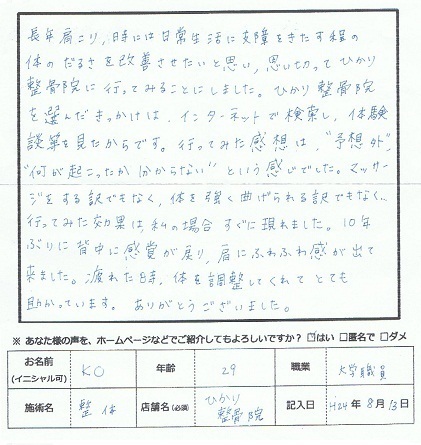 長年肩こり，時には日常生活に支障をきたす程の
体のだるさを改善させたいと思い，思い切ってひかり
整骨院に行ってみることにしました。ひかり整骨院
を選んだきっかけは，インターネットで検索し，体験
談等を見たからです。行ってみた感想は，"予想外"，
"何が起こったか分からない"という感じでした。マッサー
ジをする訳でもなく，体を強く曲げられる訳でもなく、
行ってみた効果は私の場合すぐに現れました。10年
ぶりに背中に感覚が戻り，肩にふわふわ感が出て
来ました。疲れた時，体を調整してくれてとても
助かっています。ありがとうございました。
※ あなた様の声を、ホームページなどでご紹介してもよろしいですか？ ☑はい □匿名で □ダメ
お名前 (イニシャル可) KO 年齢 29 職業 大学職員
施術名 整体 店舗名(必須) ひかり整骨院 記入日 H24年 8月 13日